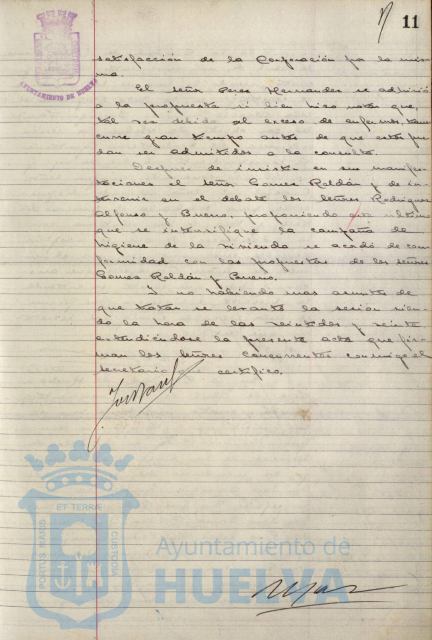 11
AYUNTAMIENTO DE HUELVA
satisfacción de la Corporación por la mis-
ma.
El señor Peres Hernandes se adhirió
a la propuesta si bien hizo notar que,
tal vez debido al exceso de enfermos, trans-
curre gran tiempo antes de que estos pue-
dan ser admitidos a la consulta.
Después de insistir en sus manifes-
taciones el señor Gomes Roldán y de in-
tervenir en el debate los señores Rodrigues
Alfonso y Bueno, proponiendo este ultimo
que se intensifique la campaña de
higiene de la vivienda se acordó de con-
formidad con las propuestas de los señores
Gomes Roldán y Bueno.
Y no habiendo mas asuntos de
que tratar se levantó la sesión sien-
do la hora de las veintidos y veinte
extendiéndose la presente acta que fir-
man los señores concurrentes conmigo el
secretario que certifico.
PORTUS MARIS ET TERRAE CUSTODIA
Ayuntamiento de
HUELVA